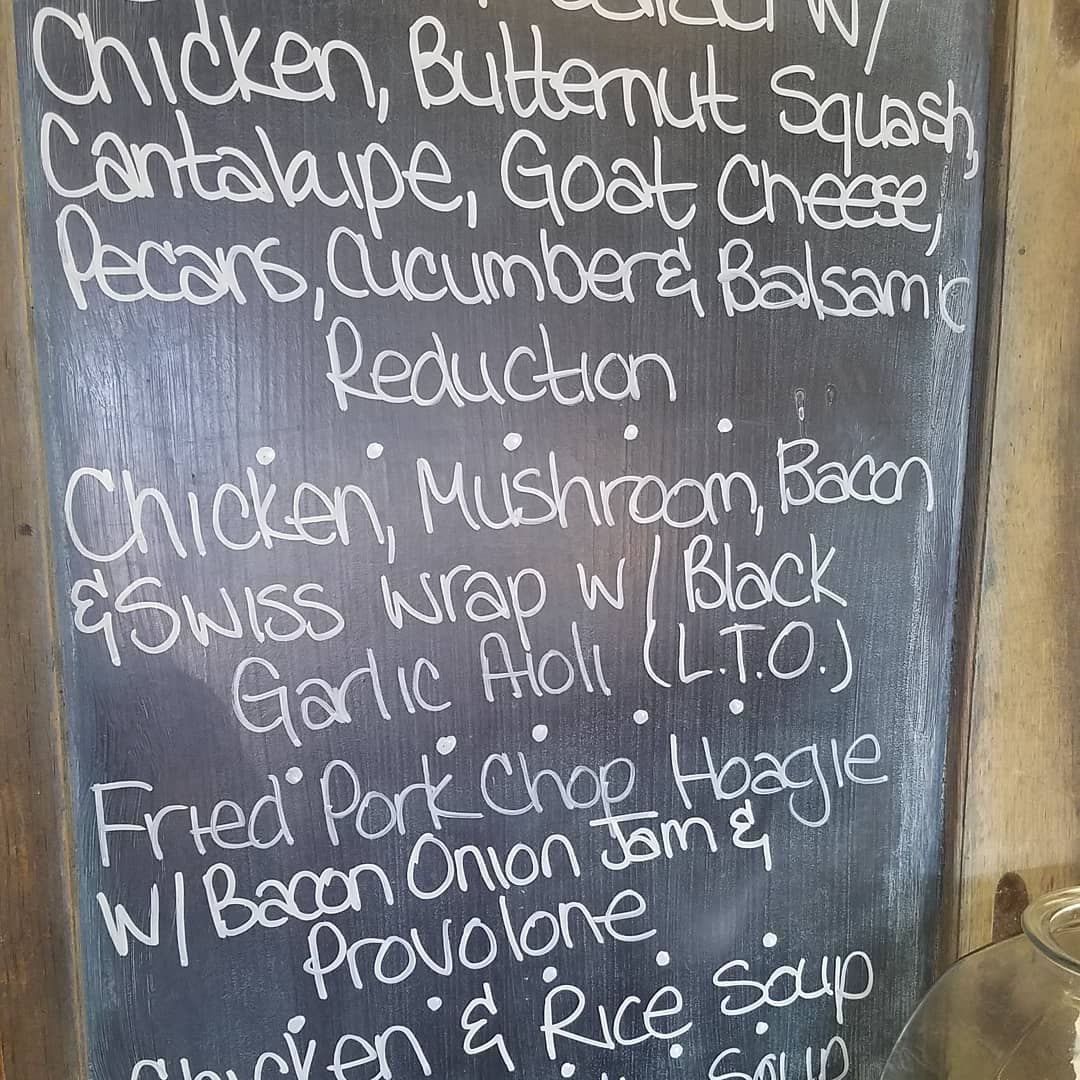 w/
Chicken, Butternut Squash,
Cantalupe, Goat Cheese,
Pecans, Cucumber & Balsamic
Reduction
Chicken, Mushroom, Bacon
& Swiss Wrap w/ Black
Garlic Aioli (L.T.O.)
Fried Pork Chop Hoagie
w/ Bacon Onion Jam &
Provolone
Chicken & Rice Soup
Soup